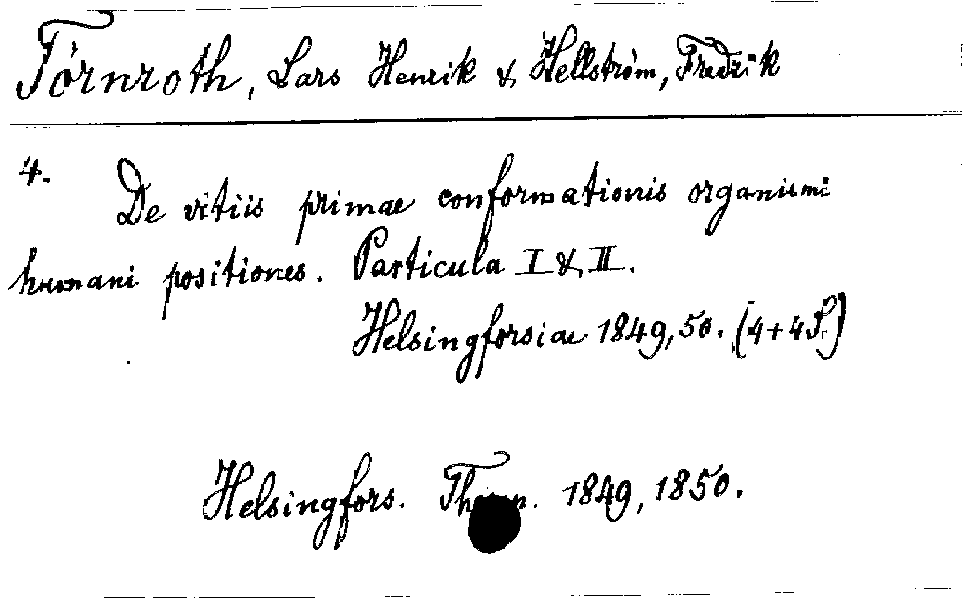 Törnroth, Lars Henrik & Hellström, Fredrik
4. De vitiis primae conformationis organismi
humani positiones. Particula I & II.
Helsingforsiae 1849, 50. (4+4 S.)
Helsingfors. 1849, 1850.